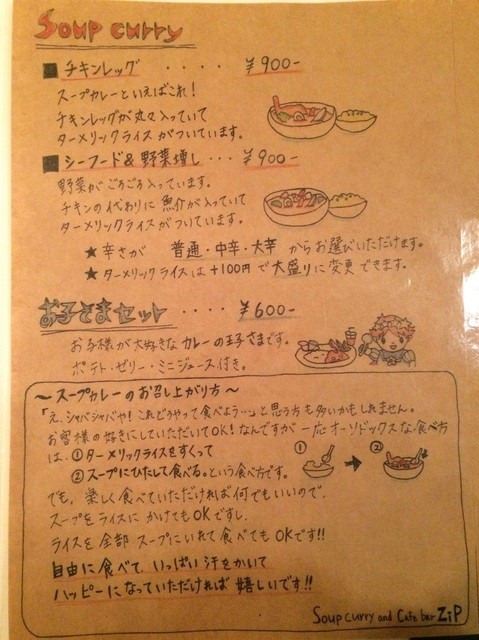 Soup curry
■ チキンレッグ ····· ¥900-
スープカレーといえばこれ!
チキンレッグが丸々入っていて
ターメリックライスがついています。
■ シーフード&野菜増し ··· ¥900-
野菜がごろごろ入っています。
チキンの代わりに魚介が入っていて
ターメリックライスがついています。
★ 辛さが 普通・中辛・大辛 からお選びいただけます。
★ ターメリックライスは+100円で大盛りに変更できます。
お子さまセット ···· ¥600-
お子様が大好きなカレーの王子さまです。
ポテト・ゼリー・ミニジュース付き。
~スープカレーのお召し上がり方~
「え、シャバシャバや!これどうやって食べよう…」と思う方も多いかもしれません。
お客様の好きにしていただいてOK!なんですが一応オーソドックスな食べ方
は、①ターメリックライスをすくって
②スープにひたして食べる。という食べ方です。
① ➡ ②
でも、楽しく食べていただければ何でもいいので、
スープをライスにかけてもOKですし、
ライスを全部スープにいれて食べてもOKです!!
自由に食べて、いっぱい汗をかいて
ハッピーになっていただければ嬉しいです!!
Soup curry and Cafe bar ZiP